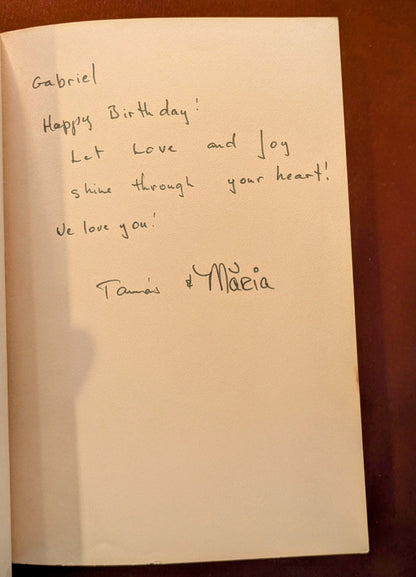 Gabriel
Happy Birthday!
Let Love and Joy
shine through your heart!
We love you!
Tamás & Mária